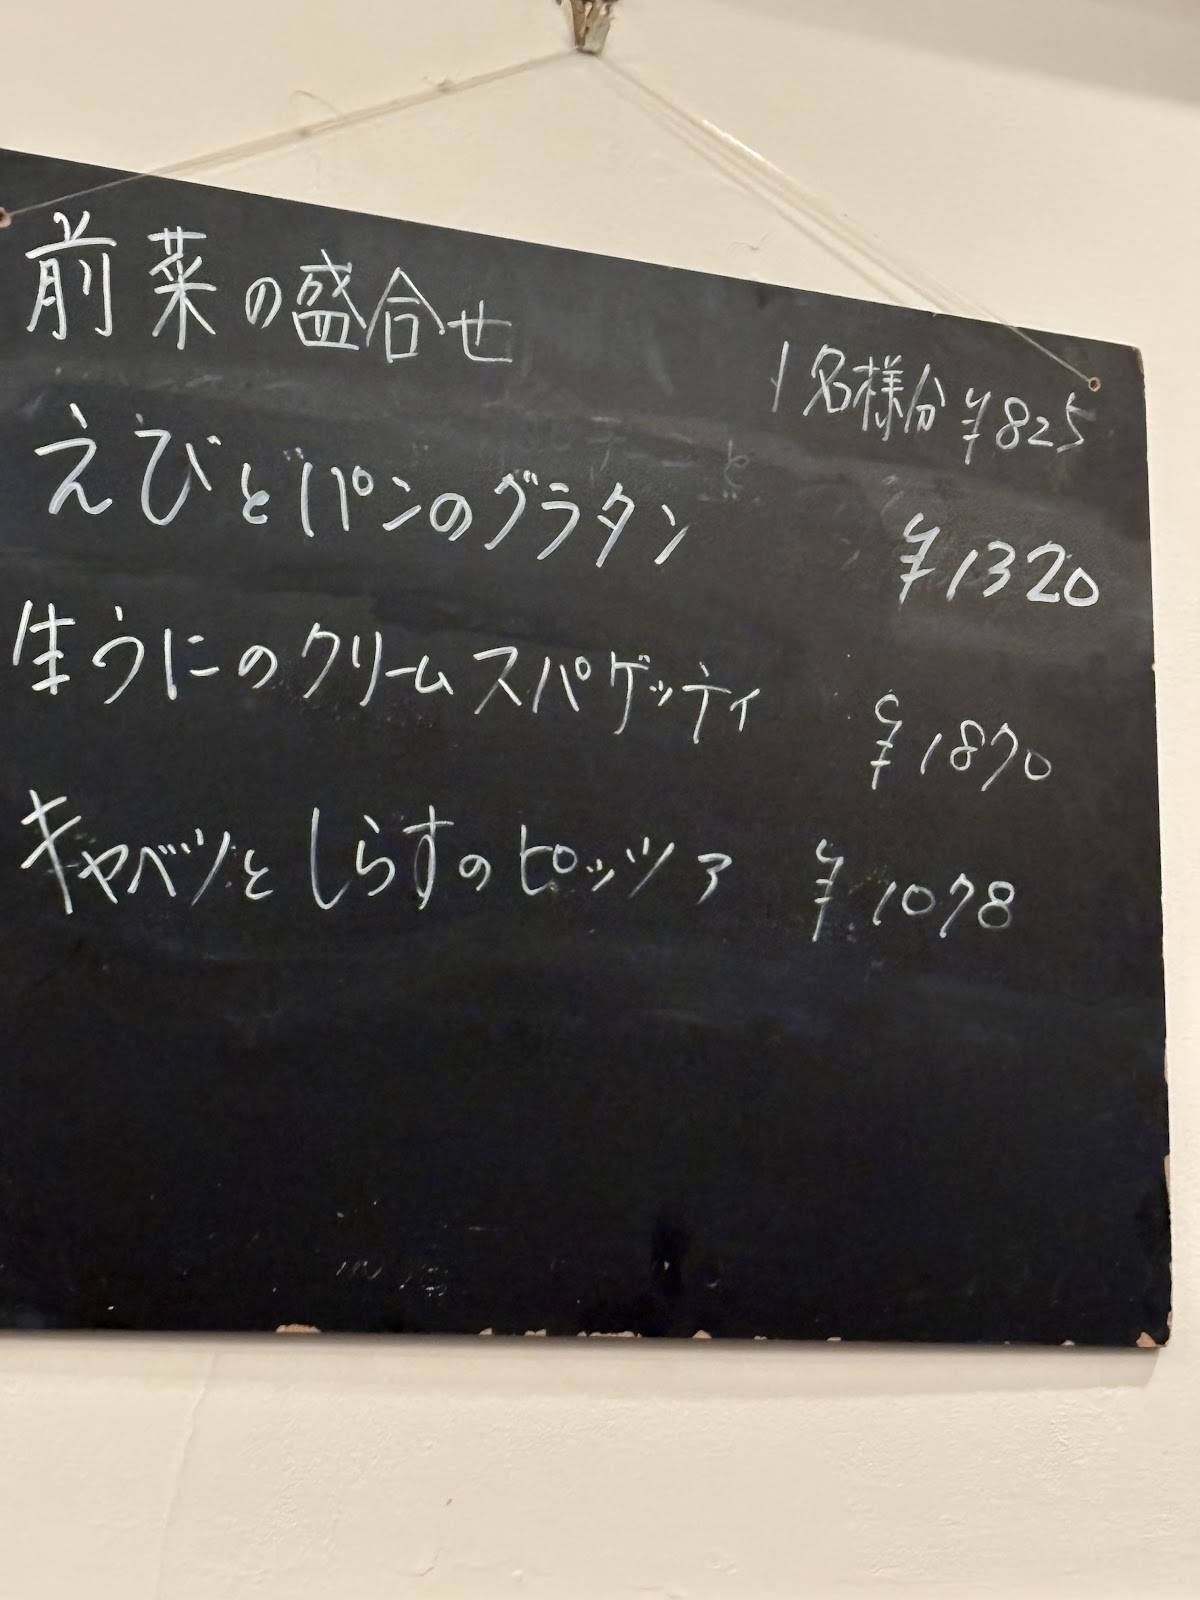 前菜の盛合せ 1名様分 ¥825
えびとパンのグラタン ¥1320
生うにのクリームスパゲッティ ¥1870
キャベツとしらすのピッツァ ¥1078